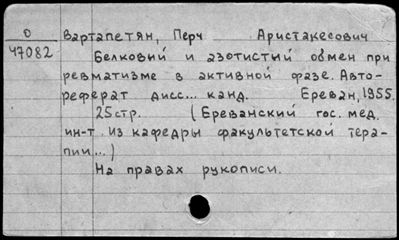 О Вартапетян, Перч Аристакесович
47082 Белковый и азотистый обмен при
ревматизме в активной фазе. Авто-
реферат дисс... канд. Ереван, 1955.
25стр. (Ереванский гос. мед.
ин-т. Из кафедры факультетской тера-
пии...)
На правах рукописи.